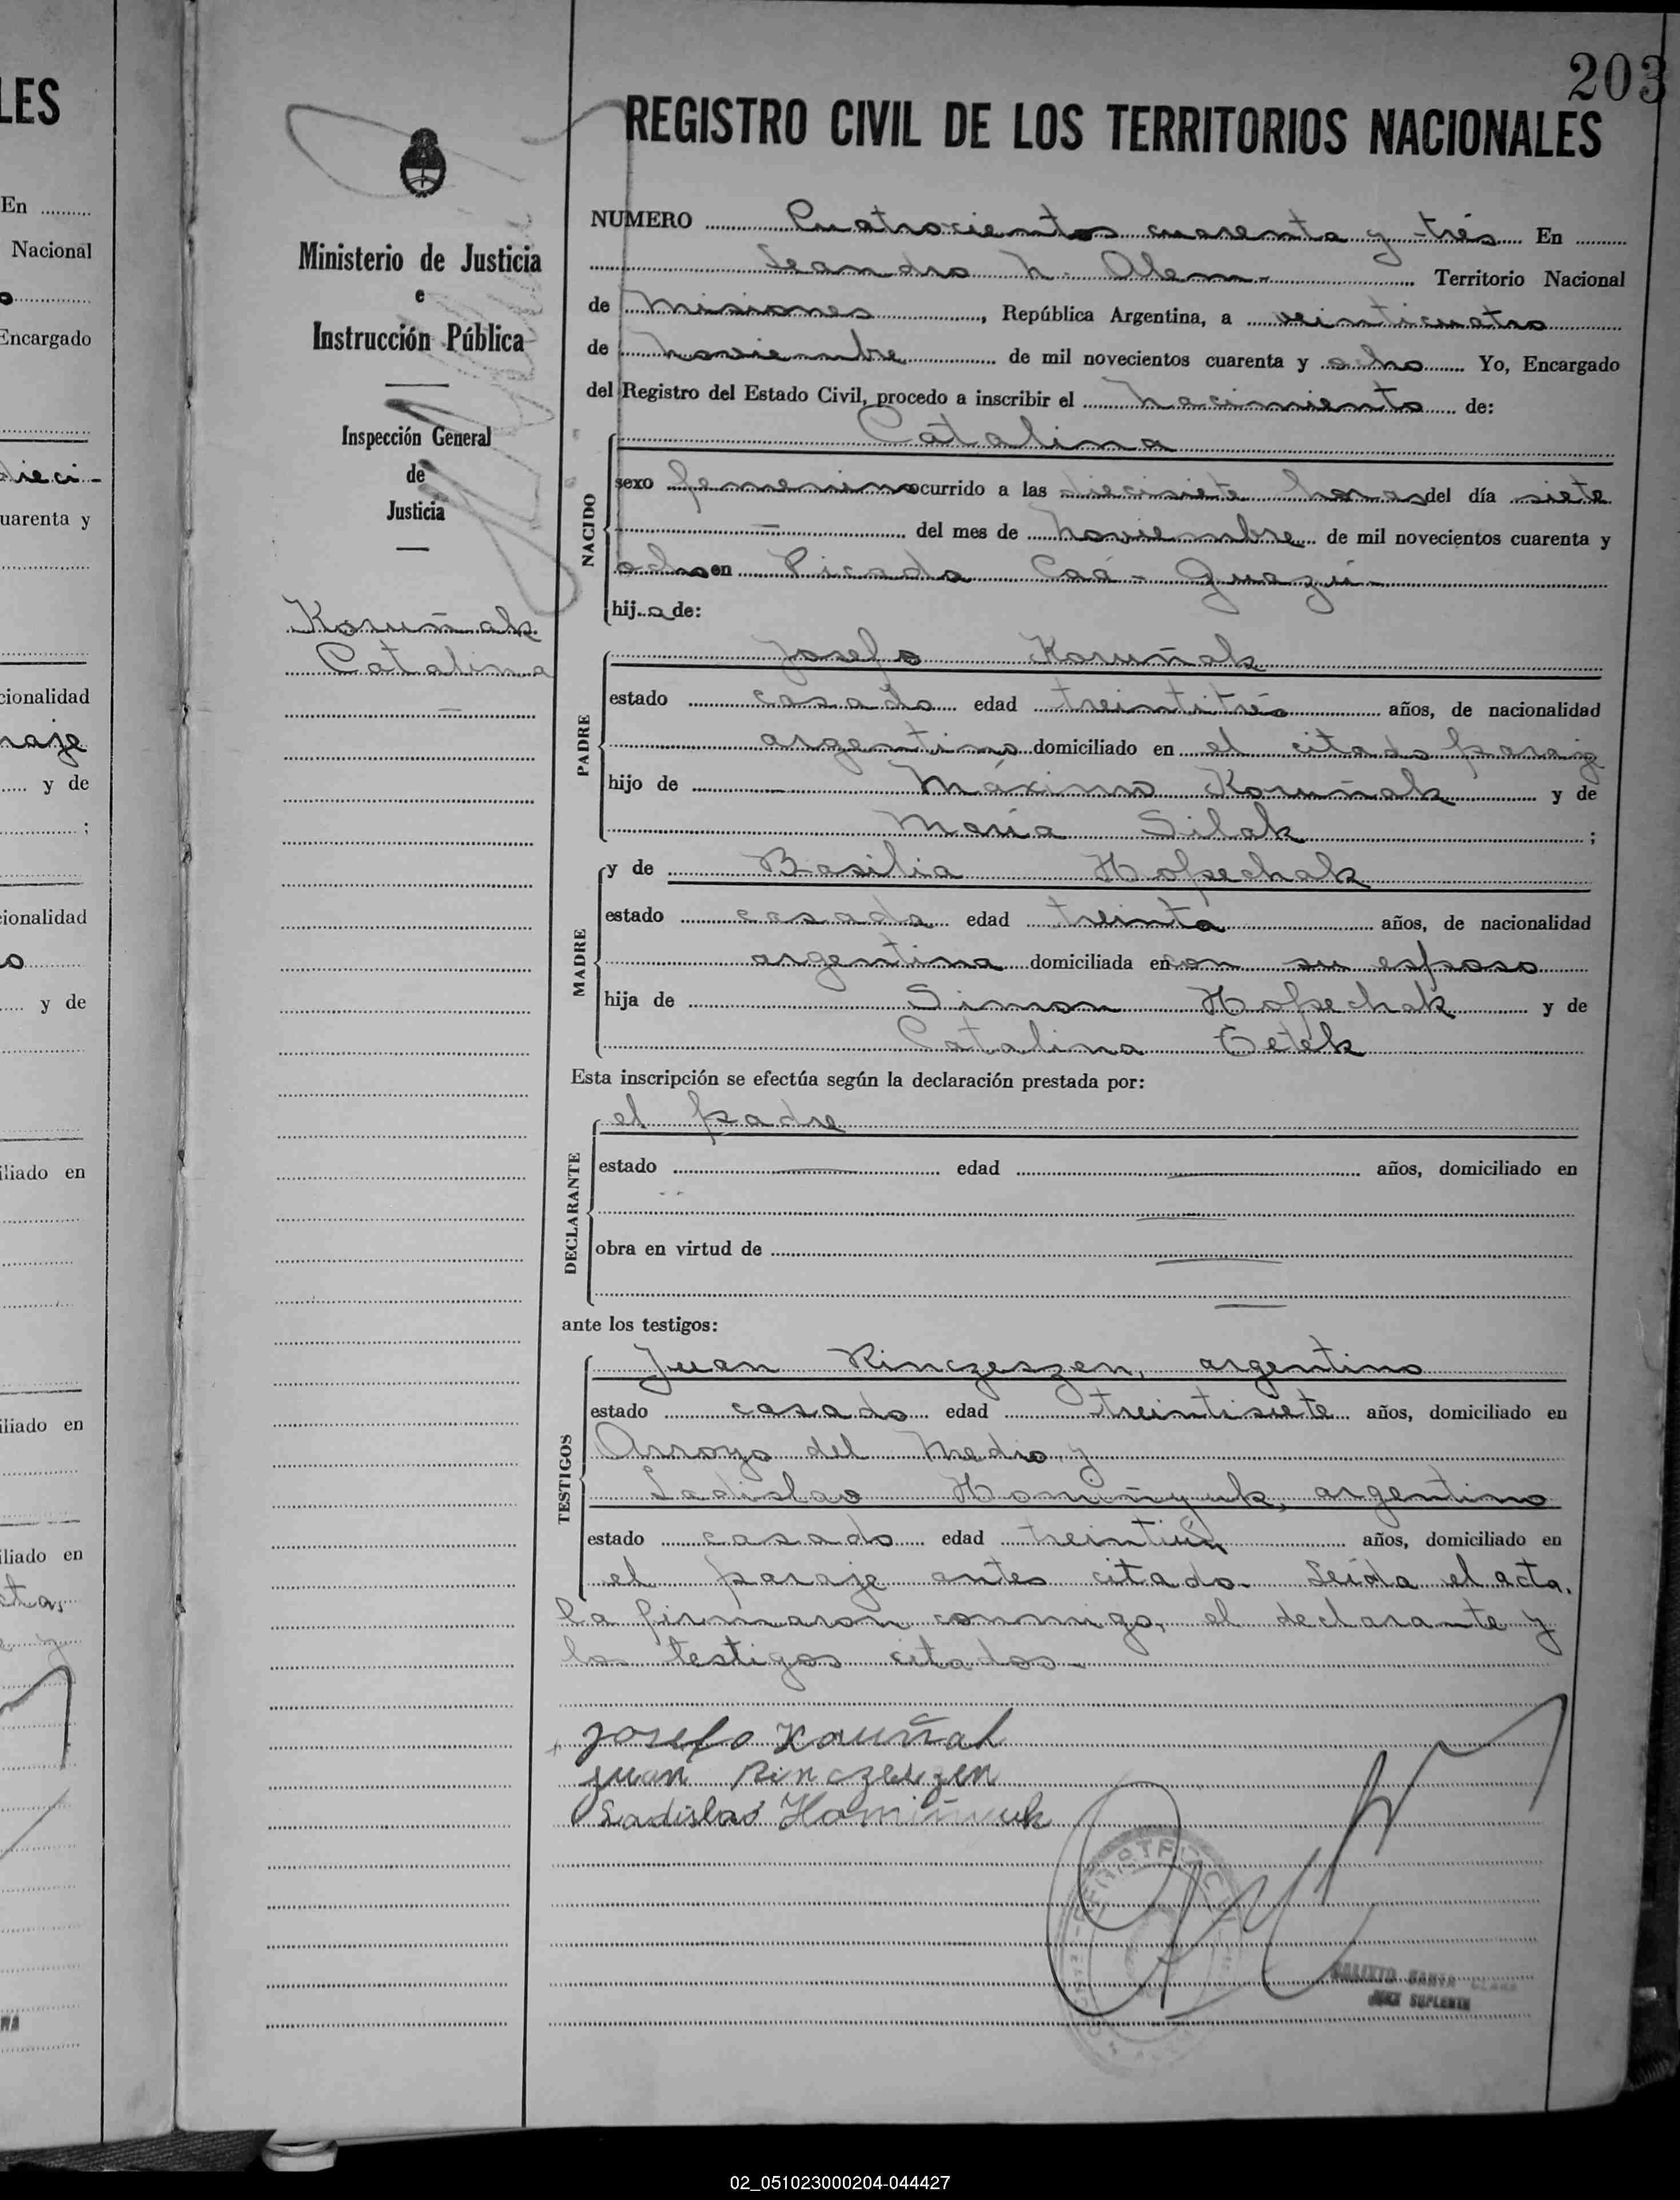 LES
En
Nacional
o
Encargado
dieci-
uarenta y
cionalidad
raje
y de
;
cionalidad
o
y de
iliado en
iliado en
iliado en
RA
203
REGISTRO CIVIL DE LOS TERRITORIOS NACIONALES
Ministerio de Justicia
e
Instrucción Pública
Inspección General
de
Justicia
Koruñak
Catalina
NUMERO Cuatrocientos cuarenta y trés En
Leandro N. Alem- Territorio Nacional
de Misiones, República Argentina, a veinticuatro
de Noviembre de mil novecientos cuarenta y ocho Yo, Encargado
del Registro del Estado Civil, procedo a inscribir el Nacimiento de:
NACIDO
Catalina
sexo femenino ocurrido a las diecisiete horas del día siete
— del mes de Noviembre de mil novecientos cuarenta y
ocho en Picada Caá-Guazú-
hija de:
PADRE
Josefo Koruñak
estado casado edad treintitrés años, de nacionalidad
argentino domiciliado en el citado paraje
hijo de Máximo Koruñak y de
María Silak ;
MADRE
y de Basilia Hopechak
estado casada edad treinta años, de nacionalidad
argentina domiciliada en con su esposo
hija de Simon Hopechak y de
Catalina Tetek
Esta inscripción se efectúa según la declaración prestada por:
DECLARANTE
el padre
estado — edad — años, domiciliado en
—
obra en virtud de —
—
ante los testigos:
TESTIGOS
Juan Rinczeszen, argentino
estado casado edad treintisiete años, domiciliado en
Arroyo del Medio, y
Ladislao Homiñuk, argentino
estado casado edad treintiún años, domiciliado en
el paraje antes citado. Leída el acta,
la firmaron conmigo, el declarante y
los testigos citados-
Josefo Koruñak
Juan Rinczeszen
Ladislao Homiñuk
CALIXTO SANTA CLARA
JUEZ SUPLENTE
02_051023000204-044427